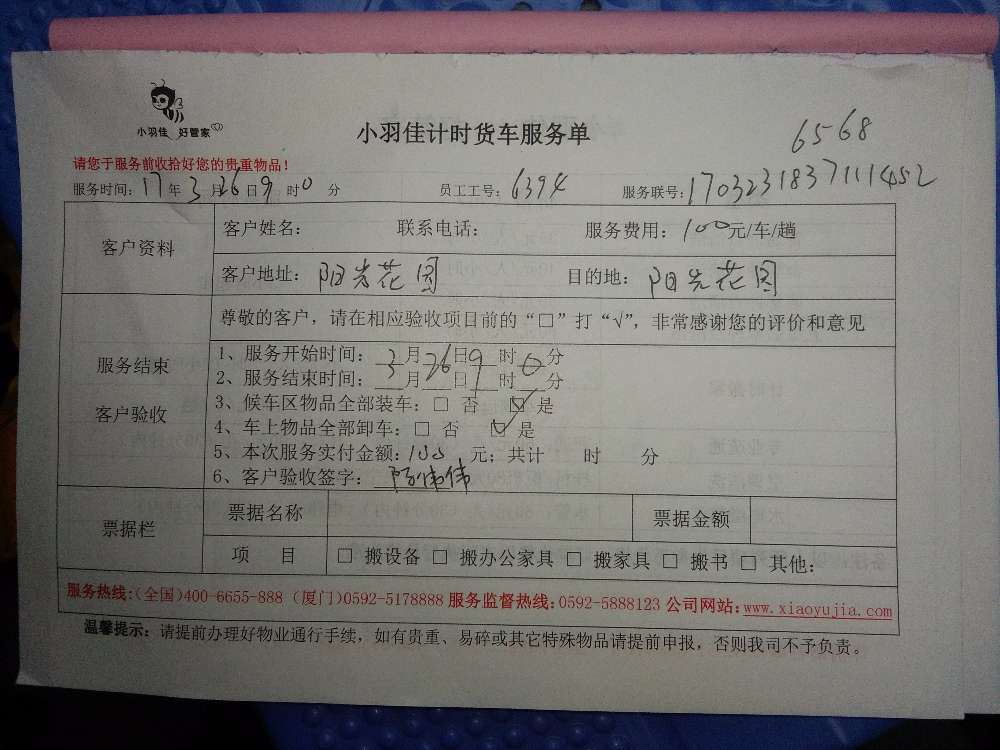 小羽佳 好管家
小羽佳计时货车服务单
6568
请您于服务前收拾好您的贵重物品！
服务时间：17年3月26日9时0分 员工工号：6394 服务联号：1703231837111452
客户资料
客户姓名： 联系电话： 服务费用：100元/车/趟
客户地址：阳光花园 目的地：阳光花园
服务结束
客户验收
尊敬的客户，请在相应验收项目前的“□”打“√”，非常感谢您的评价和意见
1、服务开始时间：3月26日9时0分
2、服务结束时间：__月__日__时__分
3、候车区物品全部装车：□ 否 ☑ 是
4、车上物品全部卸车：□ 否 ☑ 是
5、本次服务实付金额：100 元；共计 时 分
6、客户验收签字：陈伟伟
票据栏
票据名称 票据金额
项 目 □ 搬设备 □ 搬办公家具 □ 搬家具 □ 搬书 □ 其他：
服务热线：(全国)400-6655-888 (厦门)0592-5178888 服务监督热线：0592-5888123 公司网站：www.xiaoyujia.com
温馨提示：请提前办理好物业通行手续，如有贵重、易碎或其它特殊物品请提前申报，否则我司不予负责。